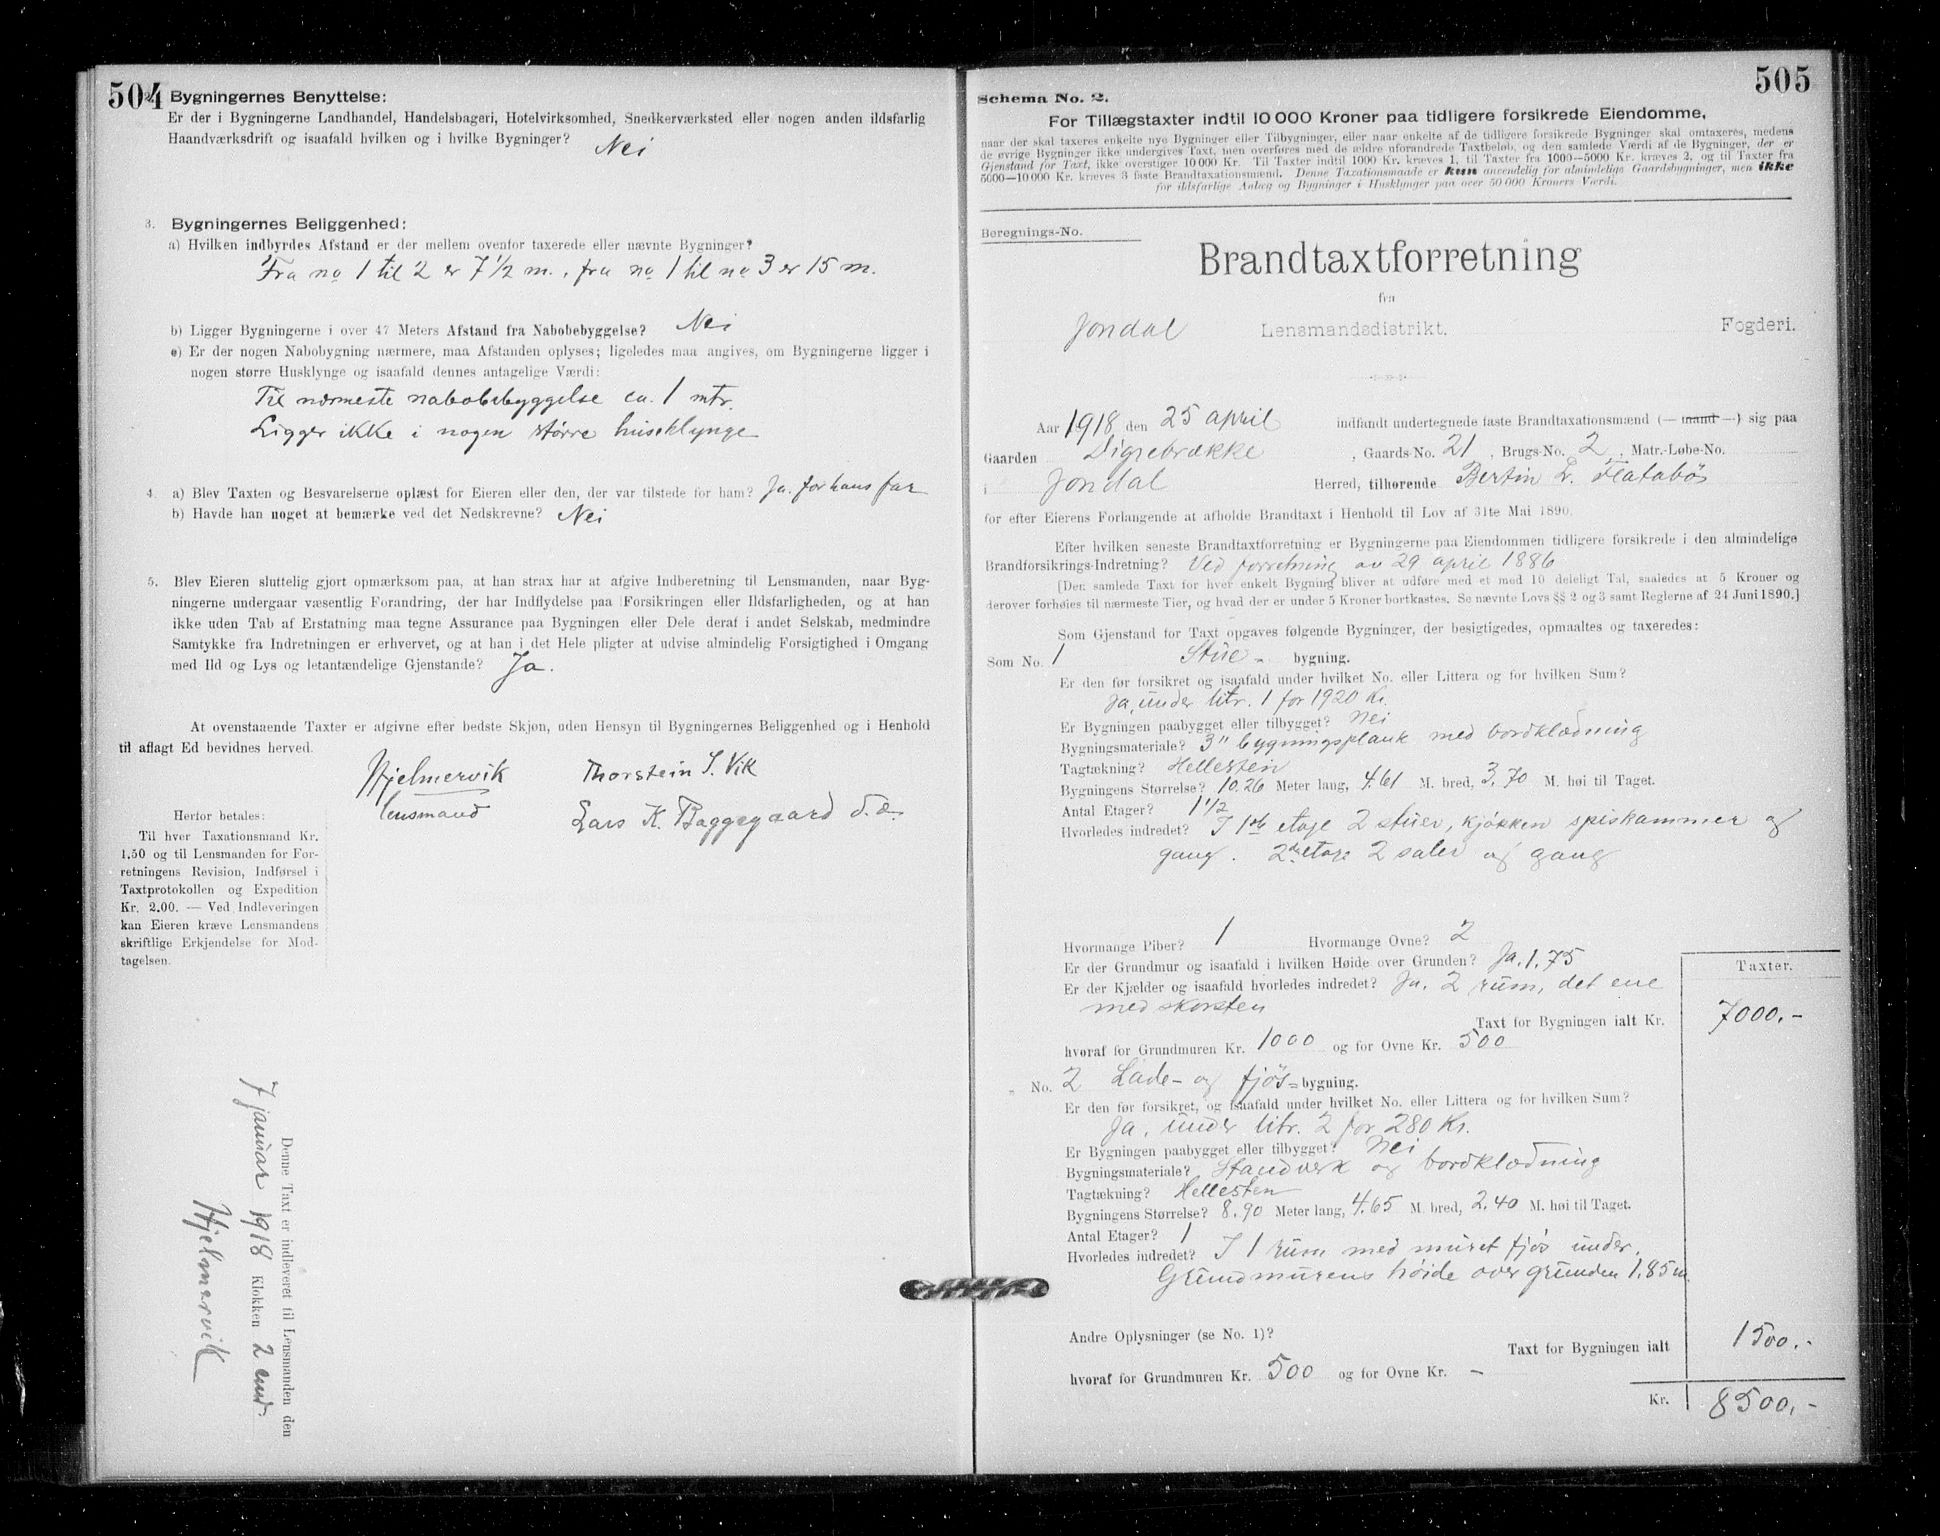 504
2. Bygningernes Benyttelse:
Er der i Bygningerne Landhandel, Handelsbageri, Hotelvirksomhed, Snedkerværksted eller nogen anden ildsfarlig
Haandværksdrift og isaafald hvilken og i hvilke Bygninger? Nei
3. Bygningernes Beliggenhed:
a) Hvilken indbyrdes Afstand er der mellem ovenfor taxerede eller nævnte Bygninger?
Fra no 1 til 2 er 7 1/2 m., fra no 1 til no 3 er 15 m.
b) Ligger Bygningerne i over 47 Meters Afstand fra Nabobebyggelse? Nei
c) Er der nogen Nabobygning nærmere, maa Afstanden oplyses; ligeledes maa angives, om Bygningerne ligger i
nogen større Husklynge og isaafald dennes antagelige Værdi:
Til nærmeste nabobebyggelse ca. 1 mtr.
Ligger ikke i nogen større huseklynge
4. a) Blev Taxten og Besvarelserne oplæst for Eieren eller den, der var tilstede for ham? Ja. for hans far
b) Havde han noget at bemærke ved det Nedskrevne? Nei
5. Blev Eieren sluttelig gjort opmærksom paa, at han strax har at afgive Indberetning til Lensmanden, naar Byg-
ningerne undergaar væsentlig Forandring, der har Indflydelse paa Forsikringen eller Ildsfarligheden, og at han
ikke uden Tab af Erstatning maa tegne Assurance paa Bygningen eller Dele deraf i andet Selskab, medmindre
Samtykke fra Indretningen er erhvervet, og at han i det Hele pligter at udvise almindelig Forsigtighed i Omgang
med Ild og Lys og letantændelige Gjenstande? Ja.
At ovenstaaende Taxter er afgivne efter bedste Skjøn, uden Hensyn til Bygningernes Beliggenhed og i Henhold
til aflagt Ed bevidnes herved.
Hjelmervik Thorstein S. Vik
lensmand Lars K. Baggegaard
Herfor betales:
Til hver Taxationsmand Kr.
1.50 og til Lensmanden for For-
retningens Revision, Indførsel i
Taxtprotokollen og Expedition
Kr. 2.00. — Ved Indleveringen
kan Eieren kræve Lensmandens
skriftlige Erkjendelse for Mod-
tagelsen.
Denne Taxt er indleveret til Lensmanden den
7 januar 1918 Klokken 2 emd.
Hjelmervik
505
Schema No. 2.
For Tillægstaxter indtil 10 000 Kroner paa tidligere forsikrede Eiendomme,
naar der skal taxeres enkelte nye Bygninger eller Tilbygninger, eller naar enkelte af de tidligere forsikrede Bygninger skal omtaxeres, medens
de øvrige Bygninger ikke undergives Taxt, men overføres med de ældre uforandrede Taxtbeløb, og den samlede Værdi af de Bygninger, der er
Gjenstand for Taxt, ikke overstiger 10 000 Kr. Til Taxter indtil 1000 Kr. kræves 1, til Taxter fra 1000—5000 Kr. kræves 2, og til Taxter fra
5000—10 000 Kr. kræves 3 faste Brandtaxationsmænd. Denne Taxationsmaade er kun anvendelig for almindelige Gaardsbygninger, men ikke
for ildsfarlige Anlæg og Bygninger i Husklynger paa over 50 000 Kroners Værdi.
Beregnings-No.
Brandtaxtforretning
fra
Jondal Lensmandsdistrikt. Fogderi.
Aar 1918 den 25 april indfandt undertegnede faste Brandtaxationsmænd (— mand —) sig paa
Gaarden Digrebrække, Gaards-No. 21, Brugs-No. 2, Matr.-Løbe-No.
i Jondal Herred, tilhørende Bertin L. Flatabø
for efter Eierens Forlangende at afholde Brandtaxt i Henhold til Lov af 31te Mai 1890.
Efter hvilken seneste Brandtaxtforretning er Bygningerne paa Eiendommen tidligere forsikrede i den almindelige
Brandforsikrings-Indretning? Ved forretning av 29 april 1886
[Den samlede Taxt for hver enkelt Bygning bliver at udføre med et med 10 deleligt Tal, saaledes at 5 Kroner og
derover forhøies til nærmeste Tier, og hvad der er under 5 Kroner bortkastes. Se nævnte Lovs §§ 2 og 3 samt Reglerne af 24 Juni 1890.]
Som Gjenstand for Taxt opgaves følgende Bygninger, der besigtigedes, opmaaltes og taxeredes:
Som No. 1 Stue- bygning.
Er den før forsikret og isaafald under hvilket No. eller Littera og for hvilken Sum?
Ja, under litr. 1 for 1920 Kr.
Er Bygningen paabygget eller tilbygget? Nei
Bygningsmateriale? 3" bygningsplank med bordklædning
Tagtækning? Hellesten
Bygningens Størrelse? 10.26 Meter lang, 4.61 M. bred, 3.70 M. høi til Taget.
Antal Etager? 1 1/2
Hvorledes indredet? I 1ste etage 2 stuer, kjøkken spiskammer og
gang. 2den etage 2 saler og gang
Hvormange Piber? 1 Hvormange Ovne? 2
Er der Grundmur og isaafald i hvilken Høide over Grunden? Ja. 1,75
Er der Kjælder og isaafald hvorledes indredet? Ja. 2 rum, det ene
med skorsten
Taxter.
Taxt for Bygningen ialt Kr. 7000.-
hvoraf for Grundmuren Kr. 1000 og for Ovne Kr. 500
" No. 2 Lade- og fjøs-bygning.
Er den før forsikret, og isaafald under hvilket No. eller Littera og for hvilken Sum?
Ja, under litr. 2 for 280 Kr.
Er Bygningen paabygget eller tilbygget? Nei
Bygningsmateriale? Standverk og bordklædning
Tagtækning? Hellesten
Bygningens Størrelse? 8.90 Meter lang, 4.65 M. bred, 2.40 M. høi til Taget.
Antal Etager? 1
Hvorledes indredet? I 1 rum med muret fjøs under.
Grundmurens høide over grunden 1.85 m.
Andre Oplysninger (se No. 1)?
Taxt for Bygningen ialt 1500.-
hvoraf for Grundmuren Kr. 500 og for Ovne Kr. -
Kr. 8500.-